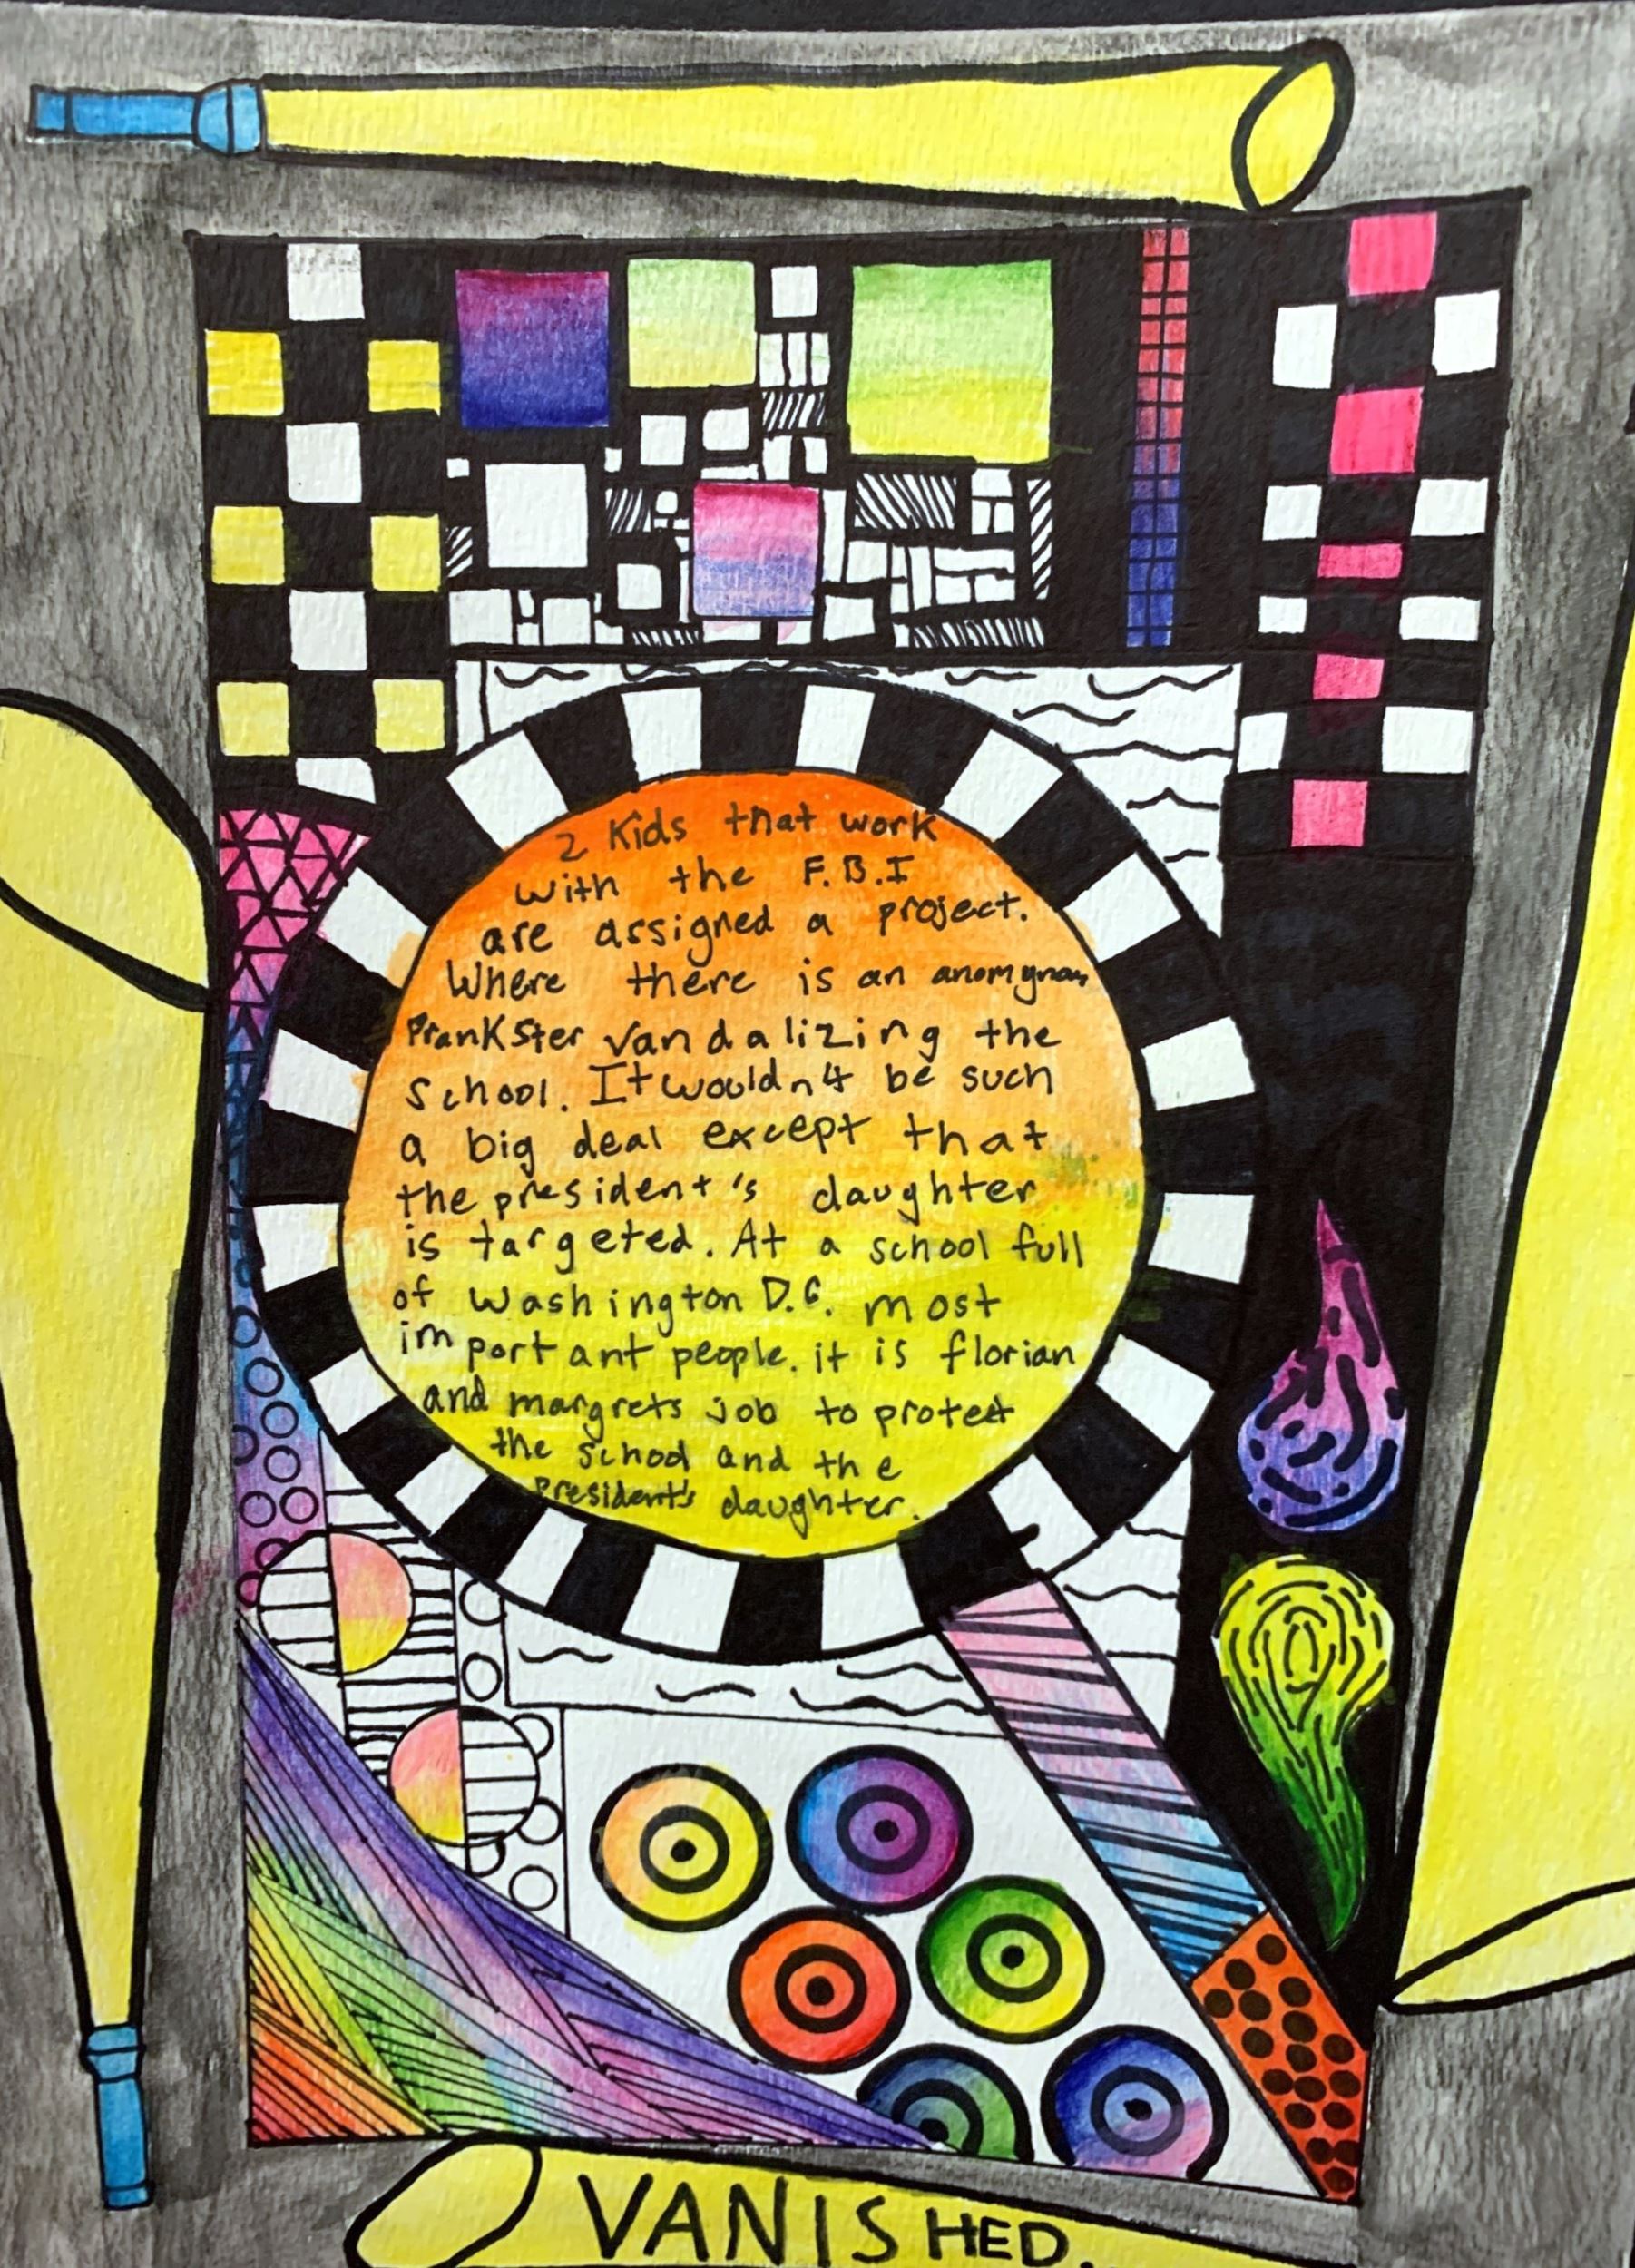 2 Kids that work
with the F.B.I
are assigned a project.
Where there is an anomynous
Prankster vandalizing the
School. It wouldn't be such
a big deal except that
the president's daughter
is targeted. At a school full
of Washington D.C. most
important people. it is florian
and margrets job to protect
the school and the
President's daughter.
VANISHED.